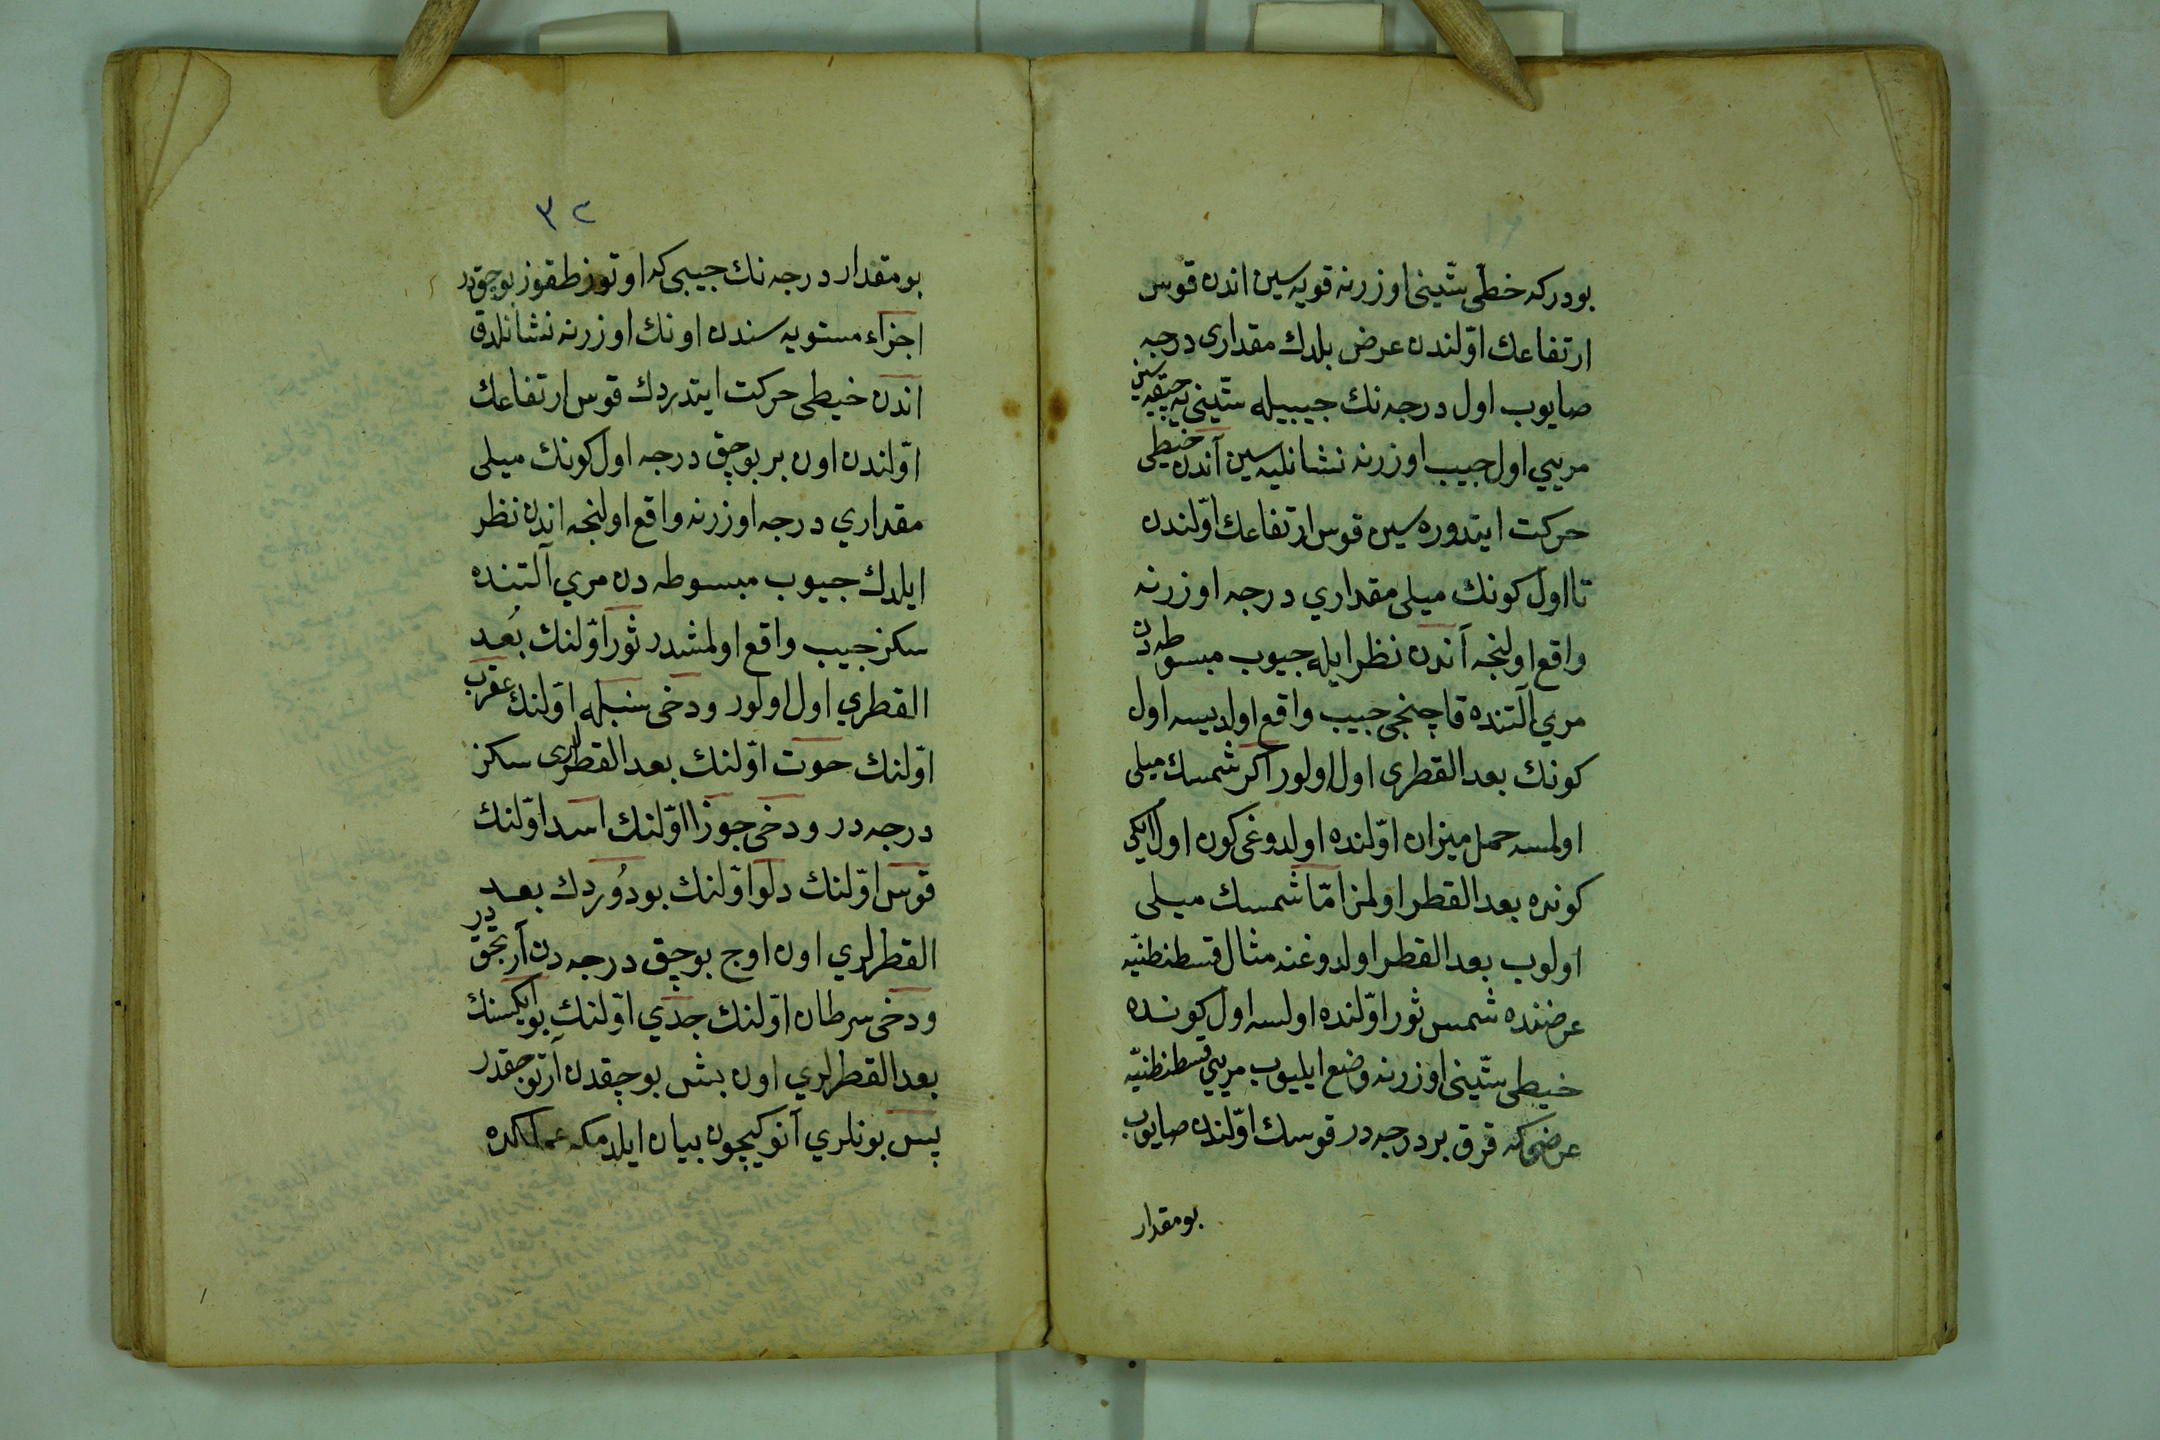 بودركه خطی ستّینی اوزرنه قویه سین اندن قوس
ارتفاعك اوّلندن عرض بلدك مقداری درجه
صایوب اول درجه نك جیبیله ستّینی یه چیقه سین
مریي اول جیب اوزرنه نشانلیه سین آندن خیطی
حركت ایتدوره سین قوس ارتفاعك اوّلندن
تا اول كونك میلی مقداري درجه اوزرنه
واقع اولنجه آندن نظر ایله جیوب مبسوطه دن
مري آلتنده قاچنجی جیب واقع اولدیسه اول
كونك بعد القطری اول اولور اكر شمسك میلی
اولمسه حمل میزان اوّلنده اولدوغی كون اول ایكی
كونده بعد القطر اولمز امّا شمسك میلی
اولوب بعد القطر اولدوغنه مثال قسطنطنیّه
عرضنده شمس ثور اوّلنده اولسه اول كونده
خیطی ستّینی اوزرنه وضع ایلیوب مریي قسطنطنیّه
عرضی كه قرق بر درجه در قوسك اوّلندن صایوب
بومقدار
٣٢
بومقدار درجه نك جیبی كه اوتوز طقوز بوچقدر
اجزاء مستویه سندن اونك اوزرنه نشانلدق
اندن خیطی حركت ایتدردك قوس ارتفاعك
اوّلندن اون بر بوچق درجه اول كونك میلی
مقداري درجه اوزرنه واقع اولنجه اندن نظر
ایلدك جیوب مبسوطه دن مري آلتنده
سكز جیب واقع اولمشدر ثور اوّلنك بُعد
القطري اول اولور ودخی سنبله اوّلنك عقرب
اوّلنك حوت اوّلنك بعد القطرلری سكز
درجه در ودخی جوزا اوّلنك اسد اوّلنك
قوس اوّلنك دلو اوّلنك بودُوردك بعد
القطرلري اون اوچ بوچق درجه دن آرتجقدر
ودخی سرطان اوّلنك جدي اوّلنك بوایكسنك
بعد القطرلري اون بش بوچقدن آرتوجقدر
پس بونلري آنوكیچون بیان ایلدمكه عملكده